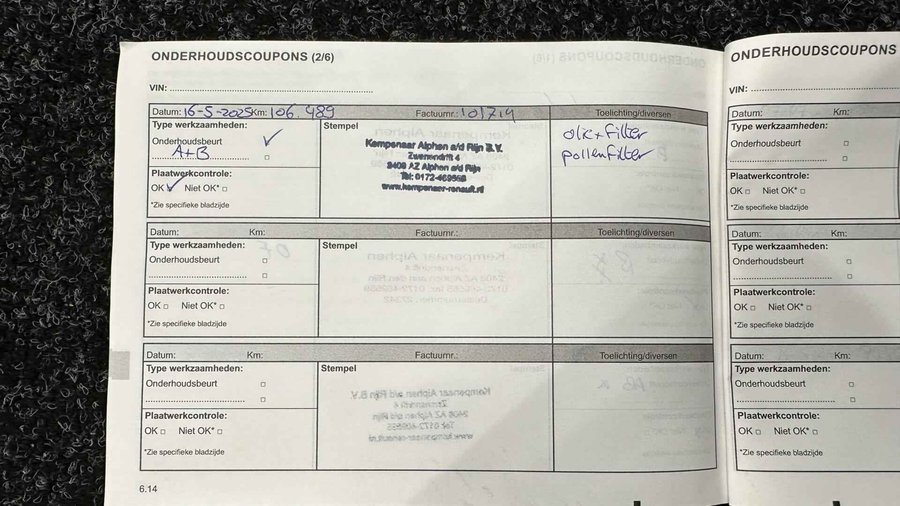 ONDERHOUDSCOUPONS (2/6)
VIN:
Datum: 16-5-2025 Km: 106.489 Factuurnr.: 101714 Toelichting/diversen
Type werkzaamheden:
Onderhoudsbeurt
A+B
Plaatwerkcontrole:
OK Niet OK*
*Zie specifieke bladzijde
Stempel
Kempenaar Alphen a/d Rijn B.V.
Zwenendrift 4
2408 AZ Alphen a/d Rijn
www.kempenaar-renault.nl
olie+filter
pollenfilter
Datum: Km: Factuurnr.: Toelichting/diversen
Type werkzaamheden:
Onderhoudsbeurt
Plaatwerkcontrole:
OK Niet OK*
*Zie specifieke bladzijde
Stempel
Datum: Km: Factuurnr.: Toelichting/diversen
Type werkzaamheden:
Onderhoudsbeurt
Plaatwerkcontrole:
OK Niet OK*
*Zie specifieke bladzijde
Stempel
6.14
ONDERHOUDSCOUPONS
VIN:
Datum: Km:
Type werkzaamheden:
Onderhoudsbeurt
Plaatwerkcontrole:
OK Niet OK*
*Zie specifieke bladzijde
Datum: Km:
Type werkzaamheden:
Onderhoudsbeurt
Plaatwerkcontrole:
OK Niet OK*
*Zie specifieke bladzijde
Datum: Km:
Type werkzaamheden:
Onderhoudsbeurt
Plaatwerkcontrole:
OK Niet OK*
*Zie specifieke bladzijde